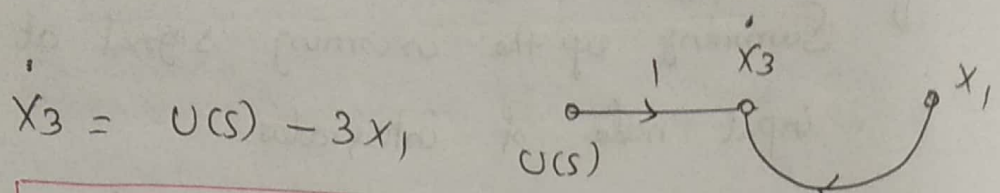 Ẋ3 = U(S) - 3x1
1
Ẋ3
x1
U(S)